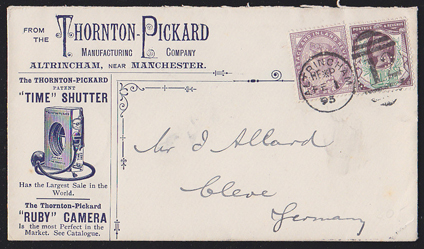 FROM THE THORNTON-PICKARD
MANUFACTURING COMPANY
ALTRINCHAM, NEAR MANCHESTER.
The THORNTON-PICKARD
PATENT
"TIME" SHUTTER
Has the Largest Sale in the
World.
The Thornton-Pickard
"RUBY" CAMERA
Is the most Perfect in the
Market. See Catalogue.
ALTRINCHAM
95
Mr J Allard
Cleve
Germany